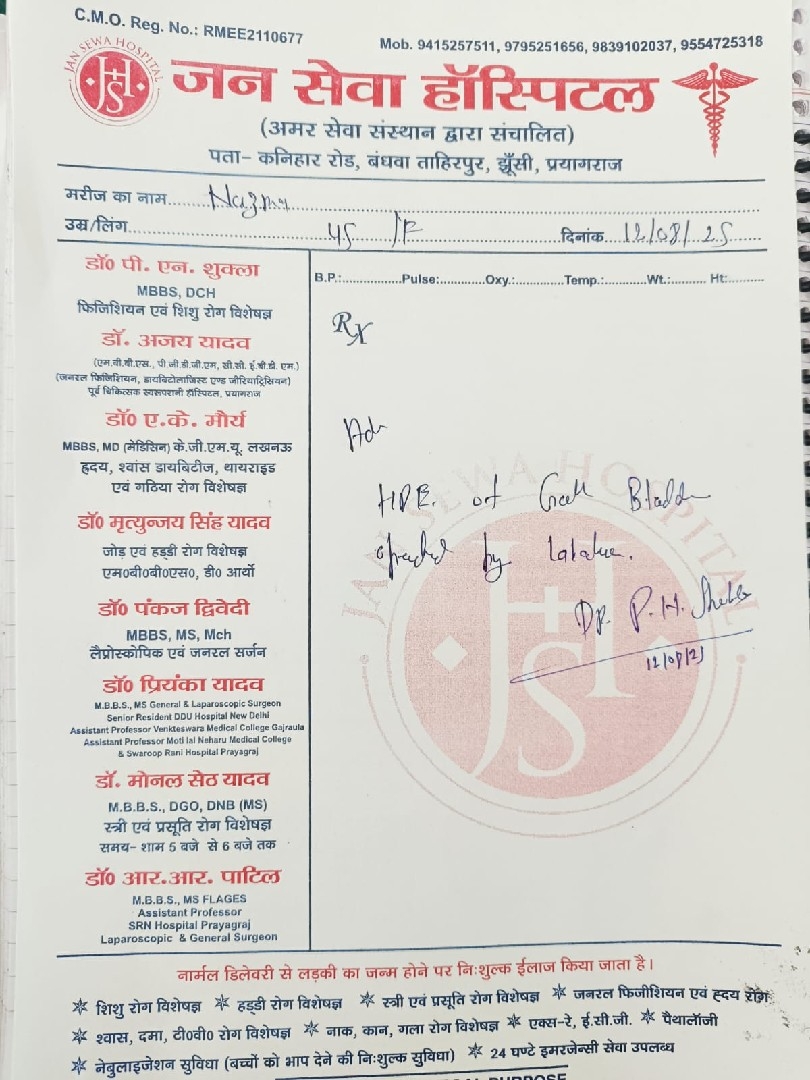 C.M.O. Reg. No.: RMEE2110677
Mob. 9415257511, 9795251656, 9839102037, 9554725318
JAN SEWA HOSPITAL
जन सेवा हॉस्पिटल
(अमर सेवा संस्थान द्वारा संचालित)
पता- कनिहार रोड, बंधवा ताहिरपुर, झूँसी, प्रयागराज
मरीज का नाम Nazma
उम्र/लिंग 45 /F दिनांक 12/08/25
B.P.: Pulse: Oxy.: Temp.: Wt.: Ht:
डॉ0 पी. एन. शुक्ला
MBBS, DCH
फिजिशियन एवं शिशु रोग विशेषज्ञ
डॉ. अजय यादव
(एम.बी.बी.एस., पी.जी.डी.जी.एम, सी.सी. ई.बी.डी. एम.)
(जनरल फिजिशियन, डायबिटोलाजिस्ट एण्ड जीरियाट्रिसियन)
पूर्व चिकित्सक स्वरूपरानी हॉस्पिटल, प्रयागराज
डॉ0 ए.के. मौर्य
MBBS, MD (मेडिसिन) के.जी.एम.यू. लखनऊ
हृदय, श्वांस डायबिटीज, थायराइड
एवं गठिया रोग विशेषज्ञ
डॉ0 मृत्युन्जय सिंह यादव
जोड़ एवं हड्डी रोग विशेषज्ञ
एम0बी0बी0एस0, डी0 आर्थो
डॉ0 पंकज द्विवेदी
MBBS, MS, Mch
लैप्रोस्कोपिक एवं जनरल सर्जन
डॉ0 प्रियंका यादव
M.B.B.S., MS General & Laparoscopic Surgeon
Senior Resident DDU Hospital New Delhi
Assistant Professor Venkteswara Medical College Gajraula
Assistant Professor Moti lal Neharu Medical College
& Swaroop Rani Hospital Prayagraj
डॉ. मोनल सेठ यादव
M.B.B.S., DGO, DNB (MS)
स्त्री एवं प्रसूति रोग विशेषज्ञ
समय- शाम 5 बजे से 6 बजे तक
डॉ0 आर.आर. पाटिल
M.B.B.S., MS FLAGES
Assistant Professor
SRN Hospital Prayagraj
Laparoscopic & General Surgeon
Rx
Adv
HPE of Gall Bladder
by
Dr. P.N. Shukla
12/08/25
JAN SEWA HOSPITAL
नार्मल डिलेवरी से लड़की का जन्म होने पर निःशुल्क ईलाज किया जाता है।
शिशु रोग विशेषज्ञ हड्डी रोग विशेषज्ञ स्त्री एवं प्रसूति रोग विशेषज्ञ जनरल फिजीशियन एवं ह्दय रोग
श्वास, दमा, टी0बी0 रोग विशेषज्ञ नाक, कान, गला रोग विशेषज्ञ एक्स-रे, ई.सी.जी. पैथालॉजी
नेबुलाइजेशन सुविधा (बच्चों को भाप देने की निःशुल्क सुविधा) 24 घण्टे इमरजेन्सी सेवा उपलब्ध